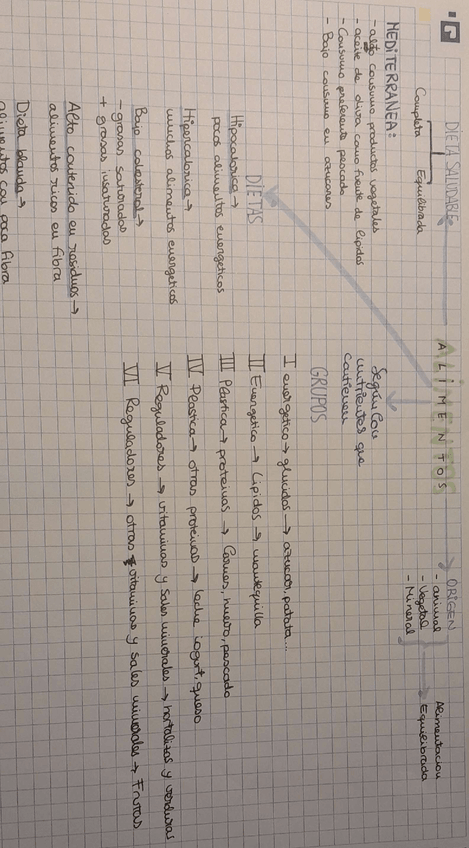 ALIMENTOS
DIETA SALUDABLE
Completa
Equilibrada
MEDITERRANEA:
- alto consumo productos vegetales
- aceite de oliva como fuente de lipidos
- Consumo preferente pescado
- Bajo consumo en azucares
DIETAS
Hipocalorica →
pocos alimentos energeticos
Hipercalorica →
muchos alimentos energeticos
Bajo colesterol →
- grasas saturadas
+ grasas insaturadas
Alto contenido en residuos →
alimentos ricos en fibra
Dieta blanda →
alimentos con poca fibra
Según los
nutrientes que
contienen
GRUPOS
I energetico → glucidos → azucar, patata...
II Energetico → Lipidos → mantequilla
III Plastica → proteinas → Carnes, huevo, pescado
IV Plastica → otras proteinas → leche iogurt, queso
V Reguladores → vitaminas y sales minerales → hortalizas y verduras
VI Reguladores → otras vitaminas y sales minerales → Frutas
ORIGEN
- animal
- Vegetal
- Mineral
Alimentacion
Equilibrada